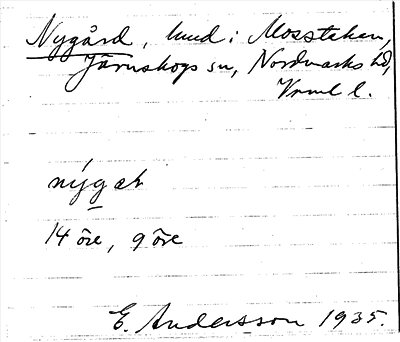 Nygård, hmd i Mosstakan,
Järnskogs sn, Nordmarks hd,
Vrml l.
nýgaṯ
14 öre, 9 öre
E. Andersson 1935.